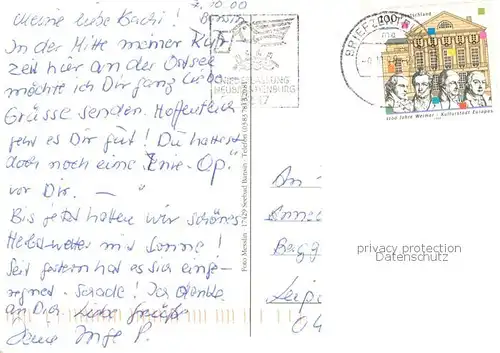 7.10.00
Meine liebe Bachi! Bansin
In der Mitte meiner Kur-
zeit hier an der Ostsee
möchte ich Dir ganz liebe
Grüsse senden. Hoffentlich
geht es Dir gut! Du hattest
doch noch eine "Knie-Op."
vor Dir. — "
Bis jetzt hatten wir schönes
Herbstwetter mit Sonne!
Seit gestern hat es sich einge-
regnet - schade! Ich denke
an Dich. Liebe Grüße
Deine Inge P.
Foto Mersdin 17429 Seebad Bansin Telefon
BRIEFZENTRUM
NEUBRANDENBURG
17
100 Deutschland
1100 Jahre Weimar · Kulturstadt Europas
An
Leip
04
privacy protection
Datenschutz